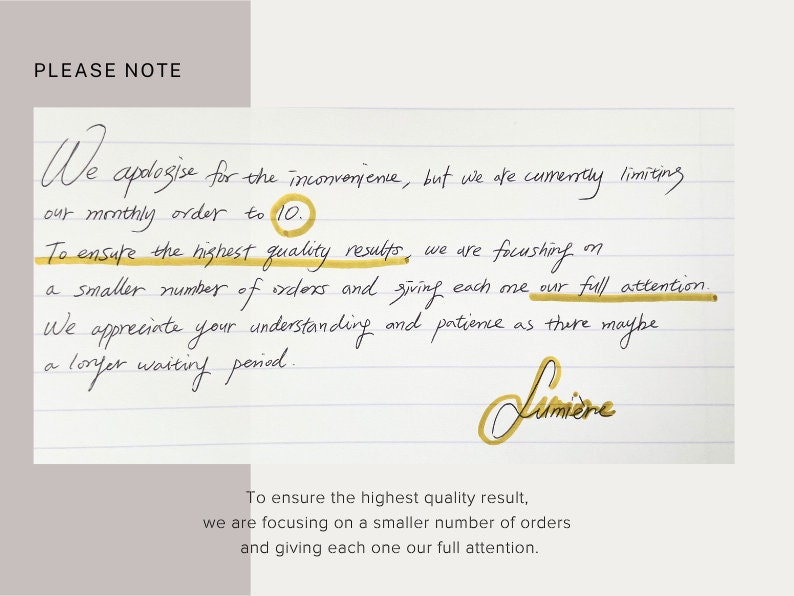 PLEASE NOTE
We apologise for the inconvenience, but we are currently limiting
our monthly order to 10.
To ensure the highest quality results, we are focushing on
a smaller number of orders and giving each one our full attention.
We appreciate your understanding and patience as there maybe
a longer waiting period.
Lumière
To ensure the highest quality result,
we are focusing on a smaller number of orders
and giving each one our full attention.